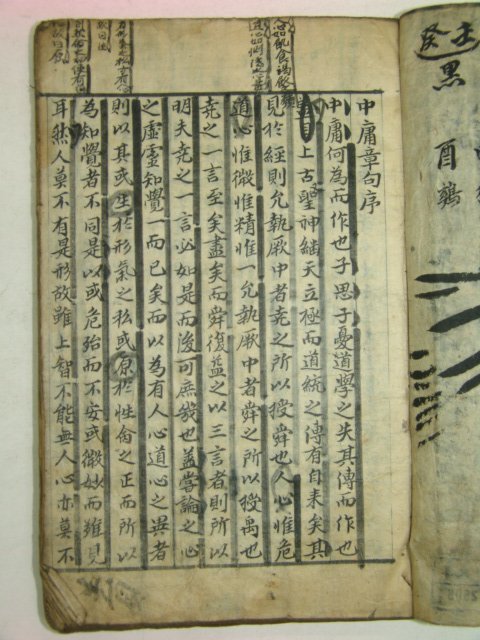 中庸章句序
中庸何為而作也子思子憂道學之失其傳而作也
上古聖神継天立極而道統之傳有自来矣其
見於經則允執厥中者堯之所以授舜也人心惟危
道心惟微惟精惟一允執厥中者舜之所以授禹也
堯之一言至矣盡矣而舜復益之以三言者則所以
明夫堯之一言必如是而後可庶幾也盖嘗論之心
之虛灵知覺一而已矣而以為有人心道心之異者
則以其或生於形氣之私或原於性命之正而所以
為知覺者不同是以或危殆而不安或微妙而難見
耳然人莫不有是形故雖上智不能無人心亦莫不
心如飢食渴飲
黑
酉